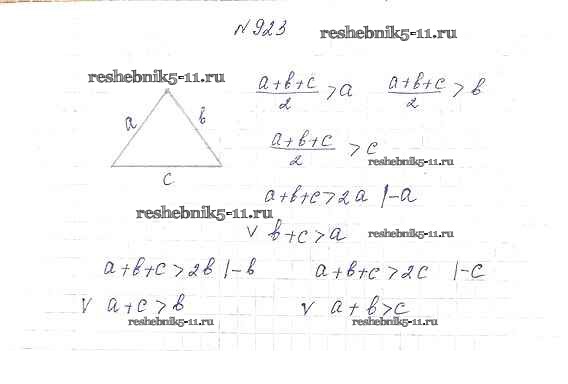 N923
reshebnik5-11.ru
reshebnik5-11.ru
a+b+c/2 > a a+b+c/2 > b
a b
a+b+c/2 > c
reshebnik5-11.ru
c
a+b+c>2a |-a
reshebnik5-11.ru
v b+c>a reshebnik5-11.ru
a+b+c>2b |-b a+b+c>2c |-c
v a+c>b v a+b>c
reshebnik5-11.ru reshebnik5-11.ru